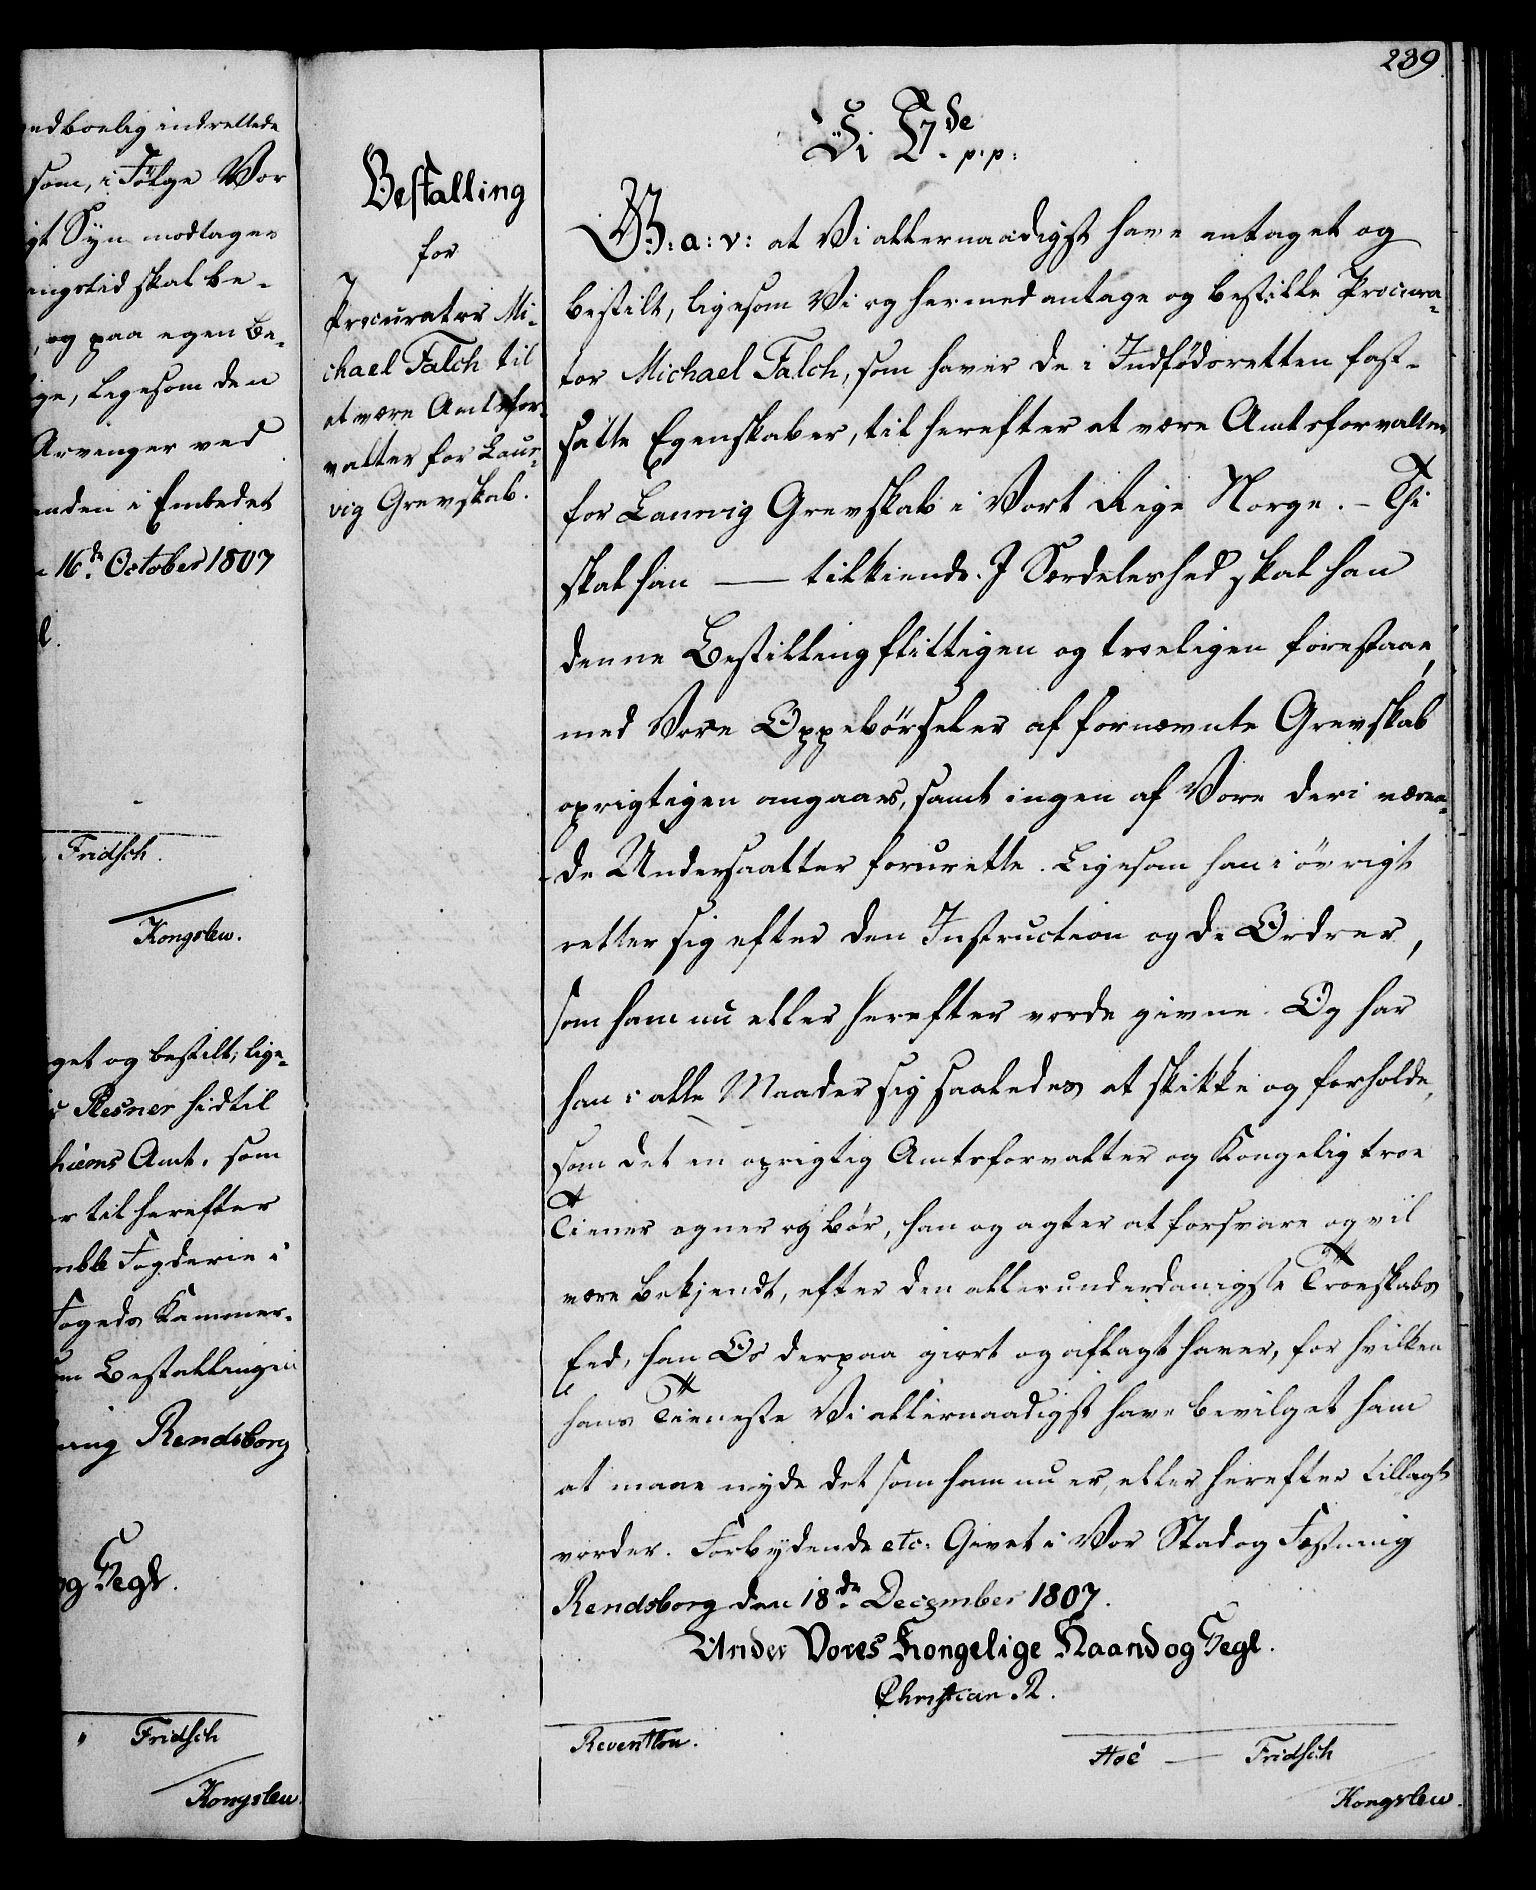 ndboelig indrettede
som, i Følge Vor
gt Syn modtager
ingstid skal be-
, og paa egen Be-
ge, ligesom den
Arvinger ved
nden i Embedet
16de October 1807
l.
Fridsch.
Kongslew.
get og bestilt; lige-
Plesner hidtil
hiems Amt, som
er til herefter
mble Fogderie i
Fogeds Kammer-
Bestallingen
ning Rendsborg
og Segl.
Fridsch
Kongslew.
239
Bestalling
for
Procurator Mi-
chael Falch til
at være Amtsfor-
valter for Laur-
vig Grevskab.
Vi C7de p.p:
G: a: v: at Vi allernaadigst have antaget og
bestilt, ligesom Vi og hermed antage og bestille Procura-
tor Michael Falch, som haver de i Indfødsretten fast-
satte Egenskaber, til herefter at være Amtsforvalter
for Laurvig Grevskab i Vort Rige Norge. – Thi
skal han — tilkiende. I Særdeleshed skal han
denne Bestilling flittigen og troeligen forestaae,
med Vore Oppebörseler af fornævnte Grevskab
oprigtigen omgaaes, samt ingen af Vore deri væren-
de Undersaatter forurette. Ligesom han i øvrigt
retter sig efter den Instruction og de Ordrer,
som ham nu eller herefter vorde givne. Og har
han i alle Maader sig saaledes at skikke og forholde,
som det en oprigtig Amtsforvalter og Kongelig troe
Tiener egner og bør, han og agter at forsvare og vil
være bekjendt, efter den allerunderdanigste Troeskabs
Eed, han Os derpaa giort og aflagt haver, for hvilken
hans Tieneste Vi allernaadigst have bevilget ham
at maae nyde det som ham nu er, eller herefter tillagt
vorder. Forbydende etc: Givet i Vor Stad og Fæstning
Rendsborg den 18de December 1807.
Under Vores Kongelige Haand og Segl.
Christian R.
Reventlou.
Hoë — Fridsch
Kongslew.